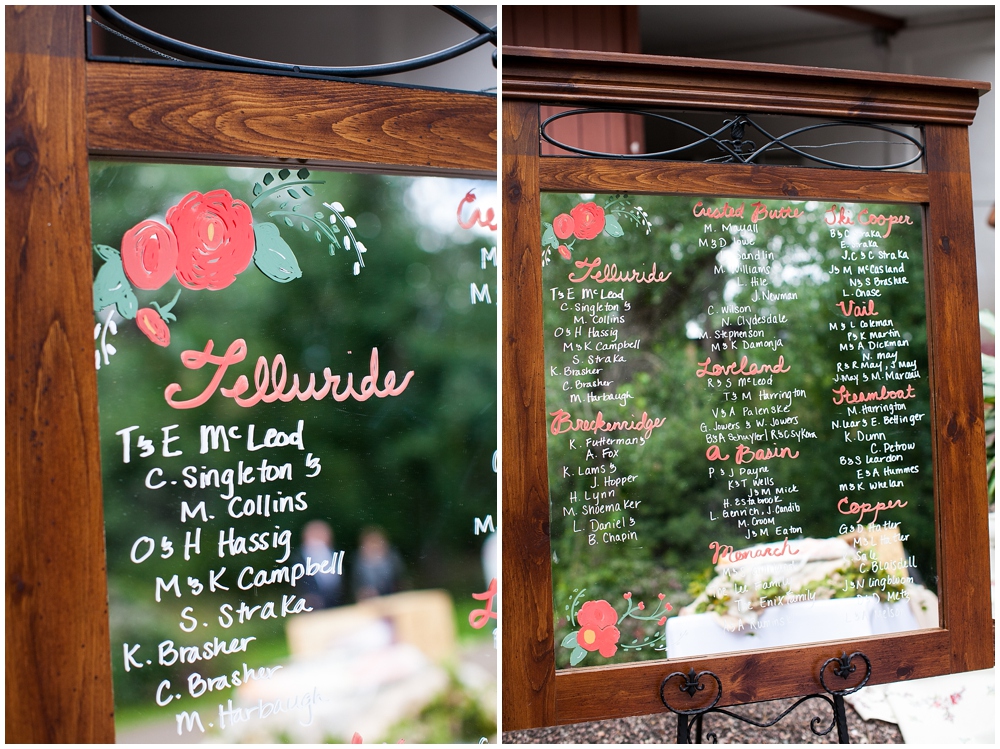 Telluride
T & E McLeod
C. Singleton &
M. Collins
O & H Hassig
M & K Campbell
S. Straka
K. Brasher
C. Brasher
M. Harbaugh
Cre
M
M
Telluride
T & E McLeod
C. Singleton &
M. Collins
O & H Hassig
M & K Campbell
S. Straka
K. Brasher
C. Brasher
M. Harbaugh
Breckenridge
K. Futterman &
A. Fox
K. Lams &
J. Hopper
H. Lynn
M. Shoemaker
L. Daniel &
B. Chapin
Crested Butte
M. Mayall
M & D Lowe
M. Williams
L. Hile
J. Newman
C. Wilson
N. Clydesdale
M. Stephenson
M & K Damonja
Loveland
R & S McLeod
T & M Harrington
V & A Palenske
G. Jowers & W. Jowers
B & A Schuyler | R & C Sykora
A Basin
P & J Payne
K & T Wells
J & M Mick
H. Estabrook
L. Genrich, J. Candib
M. Croom
J & M Eaton
Monarch
Family
The Enix family
Ski Cooper
B & C Straka
E. Straka
J, C & C Straka
J & M McCasland
N & S Brashre
L. Chase
Vail
M & L Coleman
P & K Martin
M & A Dickman
N. may
R & R May, J May
J. May & M. Marceau
Steamboat
M. Harrington
N. Lear & E. Bettinger
K. Dunn
C. Petrow
B & S Leardon
E & A Hummes
M & K Whelan
Copper
G & D Hatler
M & L Hatler
C Blaisdell
J & N lingbloom